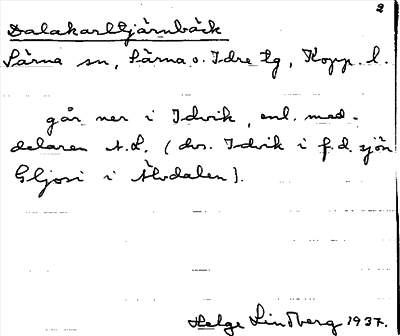 2
Dalakarltjärnbäck
Särna sn, Särna o. Idre tg, Kopp. l.
går ner i Idvik, enl. med-
delaren A.L. (dvs. Idvik i f.d. sjön
Gljosi i Älvdalen).
Helge Lindberg 1937.